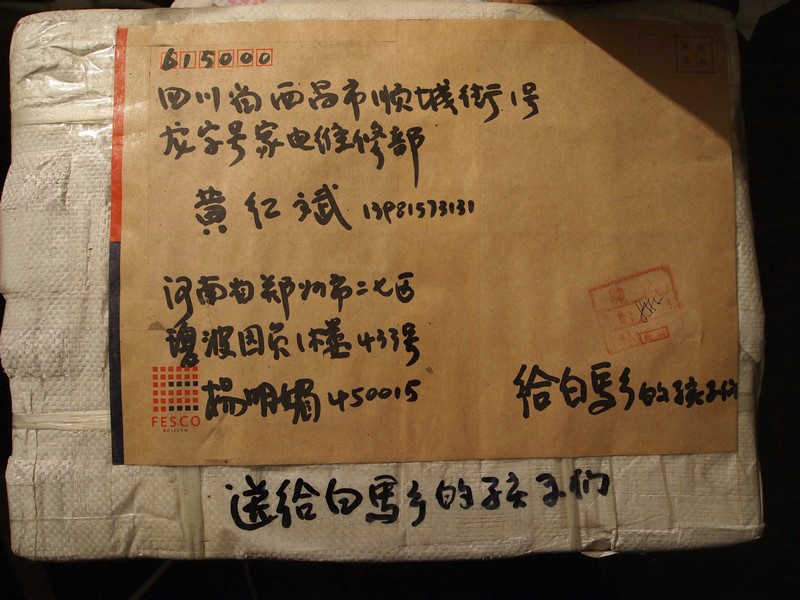 615000
四川省西昌市顺城街1号
龙字号家电维修部
黄仁斌 13981573131
河南省郑州市二七区
1楼433号
杨明媚 450015
FESCO
给白马乡的孩子们
送给白马乡的孩子们